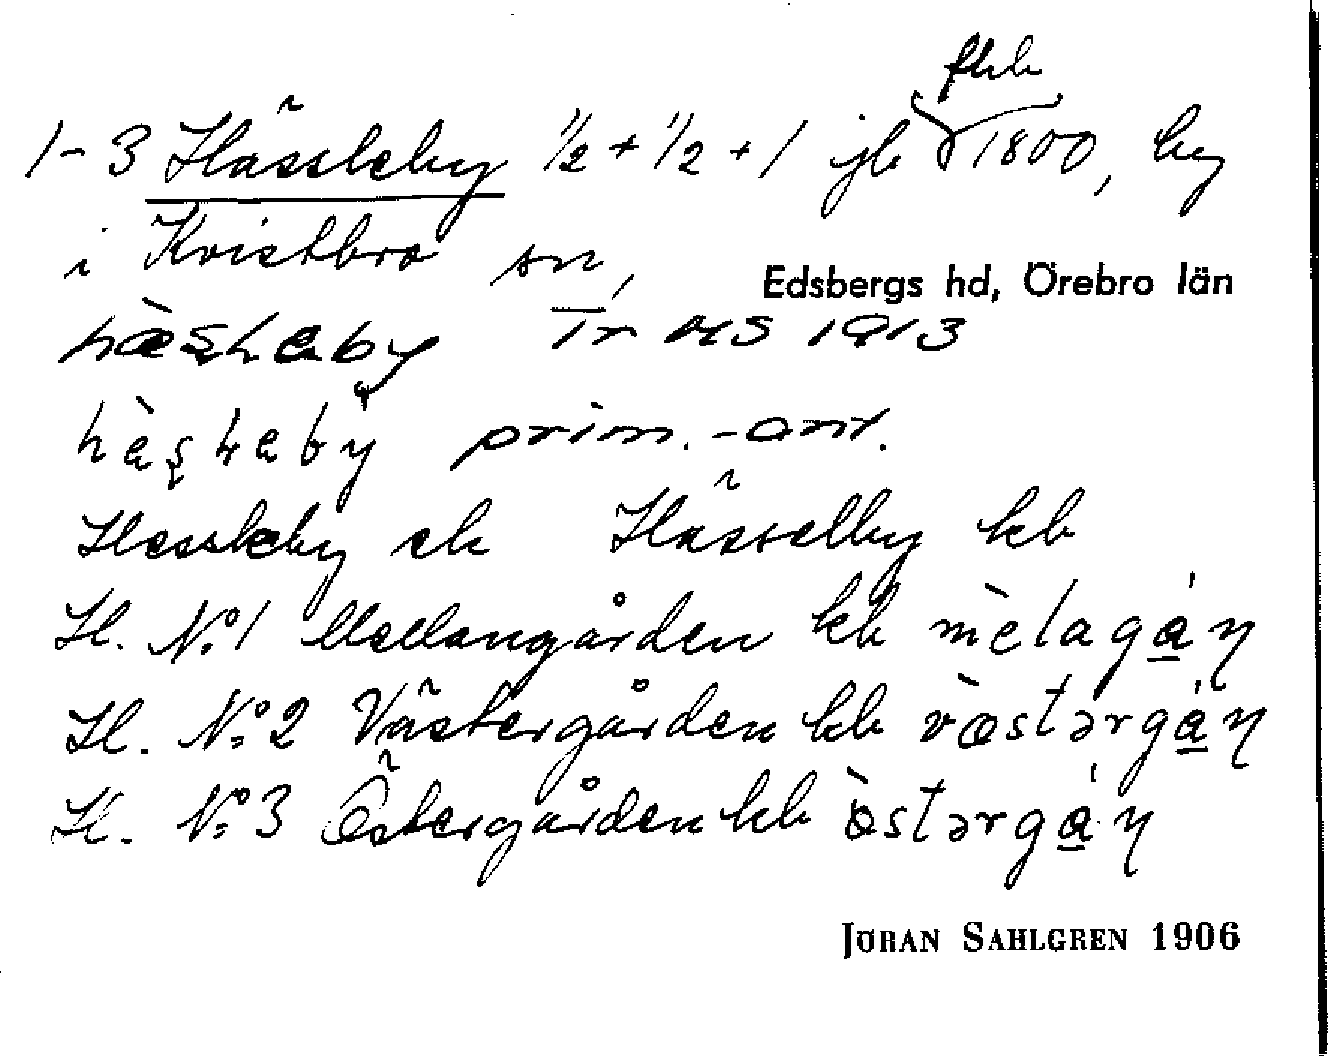 fkb
1-3 Hässleby ½ + ½ + 1 jb 1800, by
i Kvistbro sn,
Edsbergs hd, Örebro län
Tr MS 1913
prim.-ant.
Hessleby ek Hässelby kb
H. No 1 Mellangården kb mèlagá̱ɳ
H. No 2 Västergården kb væ̀stərgá̱ɳ
H. No 3 Östergården kb östərgá̱ɳ
JÖRAN SAHLGREN 1906